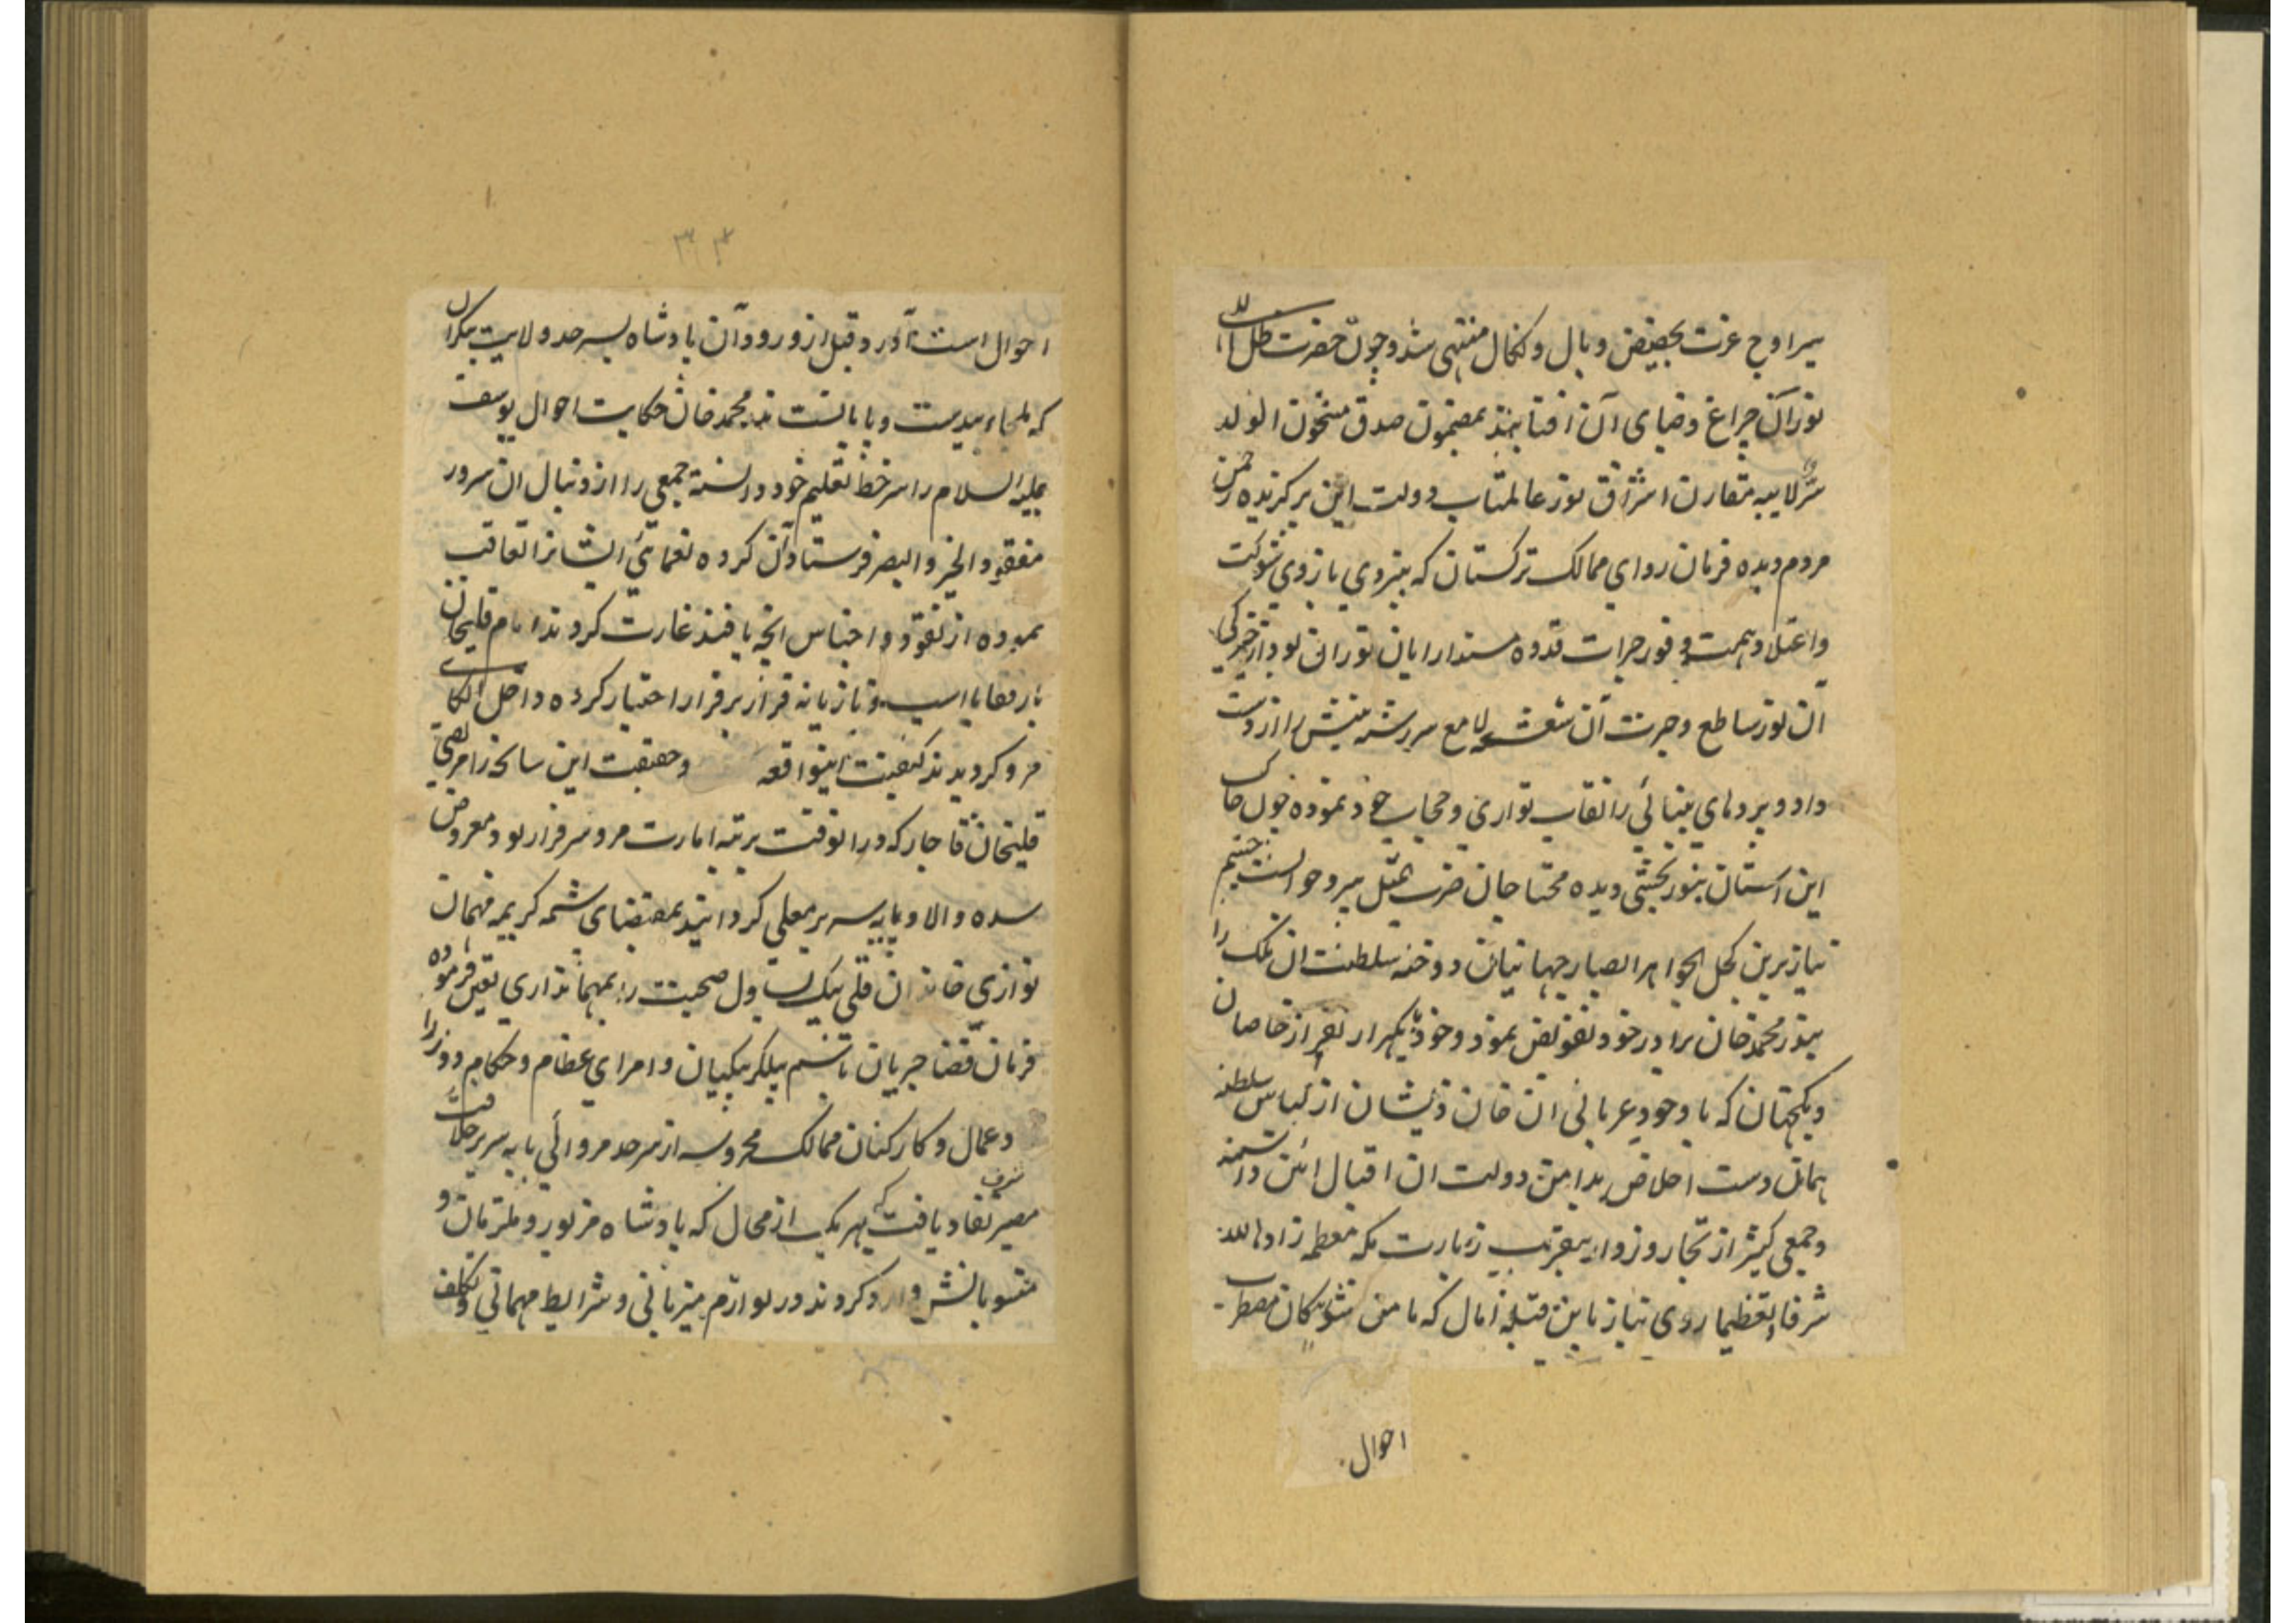 سیر اوج عزت بحضیض وبال و نکال منتهی شد و چون حضرت ظل الله
نور آن چراغ و ضیای آن آفتابند بمضمون صدق مشحون الولد
سر لابیه مقارن اشراق نور عالمتاب دولت این برگزیده
مردم دیده فرمان روای ممالک ترکستان که بنیروی بازوی شوکت
و اعتلا و همت و وفور جرات قدوه مسند ارایان توران بود از خیرگی
آن نور ساطع و حیرت آن شعشعه لامع سررشته بینش را از دست
داد و پردهای بینائی را نقاب تواری و حجاب خود نموده چون خاک
این آستان بنور بخشی دیده محتاجان ضرب المثل پیر و جوانست چشم
نیاز برین کحل الجواهر ابصار جهانیان دوخته سلطنت آن ملک را
بنذر محمد خان برادر خود تفویض نمود و خود با یکهزار نفر از خاصان
و یکجهتان که با وجود عریانی آن خان ذیشان از لباس سلطنت
همان دست اخلاص بدامن دولت آن اقبال آئین داشتند
و جمعی کثیر از تجار و زوار بتقریب زیارت مکه معظمه زادها الله
شرفا و تعظیما روی نیاز باین قبله آمال که مامن شوریدگان مضطرب
احوال
۳۳
احوال است آورد و قبل از ورود آن پادشاه بسرحد ولایت بیکران
که ملجاء بیدست و پایانست ندر محمد خان حکایت احوال یوسف
علیه السلام را سرخط تعلیم خود دانسته جمعی را از دنبال آن سرور
مفقود الخیر و البصر فرستاد آن گروه تعاقب
نموده از نقود و اجناس آنچه یافتند غارت کردند امام قلیخان
با رفقا با اسب و تازیانه فرار بر قرار اختیار کرده داخل الکای
مرو گردیدند کیفیت اینواقعه و حقیقت این سانحه را مرتضی
قلیخان قاجار که در انوقت برتبه امارت مرو سرفراز بود معروض
سده والا و پایه سریر معلی گردانید بمقتضای شیمه کریمه مهمان
نوازی خاندان قلی بیک یساول صحبت را بمهمانداری تعین فرموده
فرمان قضا جریان باسم بیلکربیکیان و امرای عظام و حکام و وزرا
و عمال و کارکنان ممالک محروسه از سرحد مرو الی پایه سریر خلافت
مصیر شرف نفاد یافت که بهر یک از محال که پادشاه مزبور و ملتزمان و
منسوبانش وارد کردند در لوازم میزبانی و شرایط مهمانی و تکلف